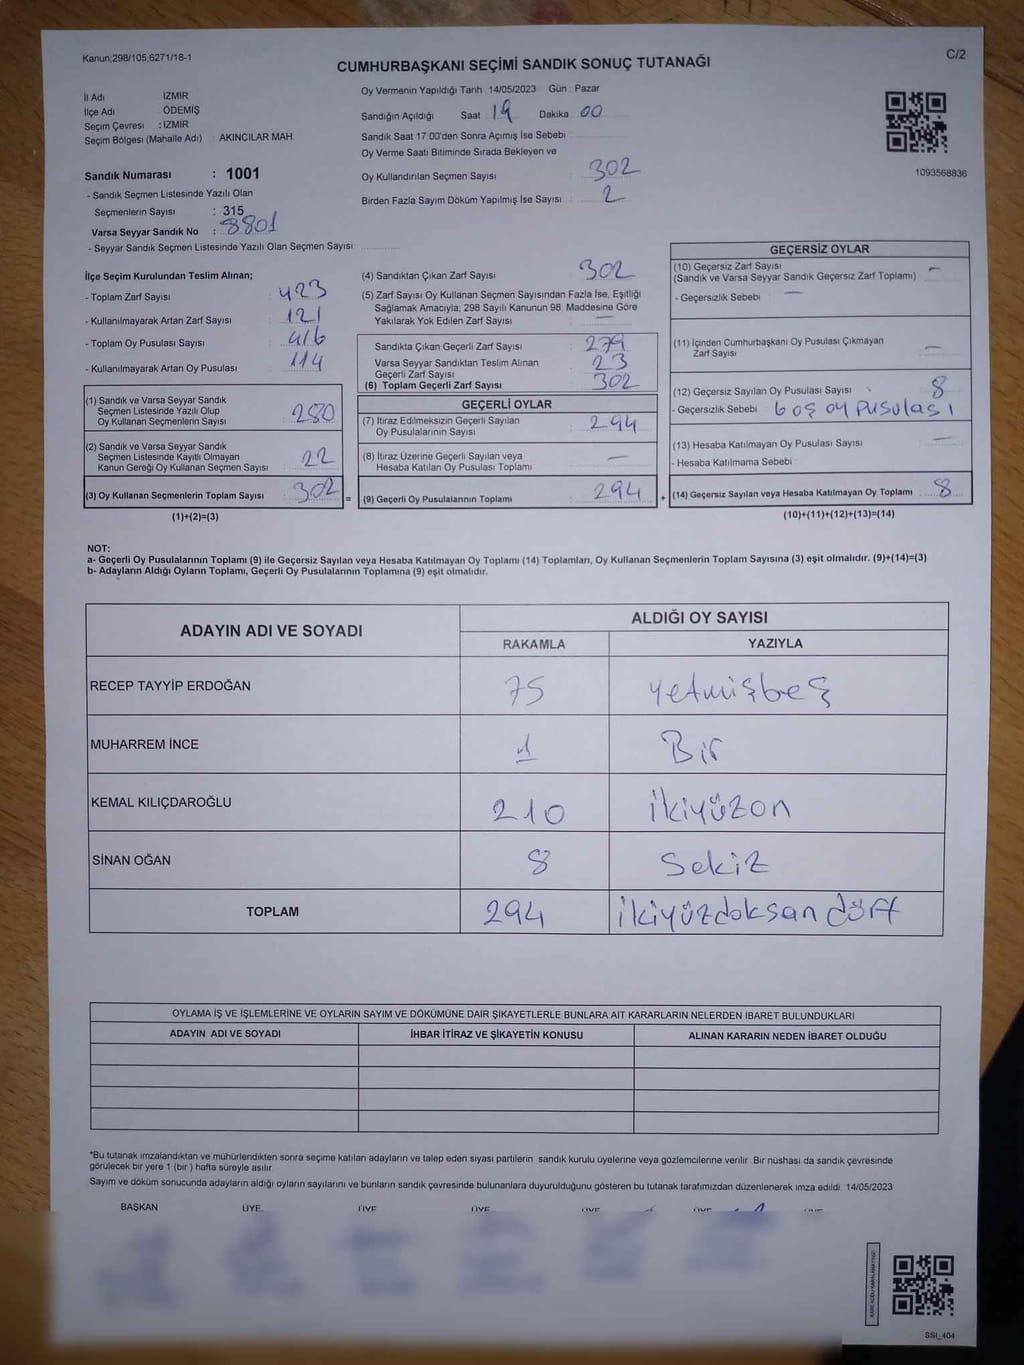 Kanun,298/105,6271/18-1
C/2
CUMHURBAŞKANI SEÇİMİ SANDIK SONUÇ TUTANAĞI
İl Adı İZMİR
İlçe Adı ÖDEMİŞ
Seçim Çevresi : İZMİR
Seçim Bölgesi (Mahalle Adı) : AKINCILAR MAH.
Sandık Numarası : 1001
- Sandık Seçmen Listesinde Yazılı Olan
Seçmenlerin Sayısı : 315
Varsa Seyyar Sandık No : 8801
- Seyyar Sandık Seçmen Listesinde Yazılı Olan Seçmen Sayısı
Oy Vermenin Yapıldığı Tarih :14/05/2023 Gün : Pazar
Sandığın Açıldığı Saat 19 Dakika 00
Sandık Saat 17:00'den Sonra Açımış İse Sebebi
Oy Verme Saati Bitiminde Sırada Bekleyen ve
Oy Kullandırılan Seçmen Sayısı : 302
Birden Fazla Sayım Döküm Yapılmış İse Sayısı : 2
1093568836
İlçe Seçim Kurulundan Teslim Alınan;
- Toplam Zarf Sayısı 423
- Kullanılmayarak Artan Zarf Sayısı : 121
- Toplam Oy Pusulası Sayısı : 416
- Kullanılmayarak Artan Oy Pusulası 114
(1) Sandık ve Varsa Seyyar Sandık
Seçmen Listesinde Yazılı Olup
Oy Kullanan Seçmenlerin Sayısı : 280
(2) Sandık ve Varsa Seyyar Sandık
Seçmen Listesinde Kayıtlı Olmayan
Kanun Gereği Oy Kullanan Seçmen Sayısı : 22
(3) Oy Kullanan Seçmenlerin Toplam Sayısı : 302
(1)+(2)=(3)
=
(4) Sandıktan Çıkan Zarf Sayısı : 302
(5) Zarf Sayısı Oy Kullanan Seçmen Sayısından Fazla İse, Eşitliği
Sağlamak Amacıyla; 298 Sayılı Kanunun 98. Maddesine Göre
Yakılarak Yok Edilen Zarf Sayısı : —
Sandıkta Çıkan Geçerli Zarf Sayısı : 279
Varsa Seyyar Sandıktan Teslim Alınan
Geçerli Zarf Sayısı : 23
(6) Toplam Geçerli Zarf Sayısı : 302
GEÇERLİ OYLAR
(7) İtiraz Edilmeksizin Geçerli Sayılan
Oy Pusulalarının Sayısı : 294
(8) İtiraz Üzerine Geçerli Sayılan veya
Hesaba Katılan Oy Pusulası Toplamı : —
(9) Geçerli Oy Pusulalarının Toplamı : 294
+
GEÇERSİZ OYLAR
(10) Geçersiz Zarf Sayısı —
(Sandık ve Varsa Seyyar Sandık Geçersiz Zarf Toplamı) :
- Geçersizlik Sebebi : —
(11) İçinden Cumhurbaşkanı Oy Pusulası Çıkmayan
Zarf Sayısı : —
(12) Geçersiz Sayılan Oy Pusulası Sayısı : 8
- Geçersizlik Sebebi : boş oy pusulası
(13) Hesaba Katılmayan Oy Pusulası Sayısı : —
- Hesaba Katılmama Sebebi :
(14) Geçersiz Sayılan veya Hesaba Katılmayan Oy Toplamı : 8
(10)+(11)+(12)+(13)=(14)
NOT:
a- Geçerli Oy Pusulalarının Toplamı (9) ile Geçersiz Sayılan veya Hesaba Katılmayan Oy Toplamı (14) Toplamları, Oy Kullanan Seçmenlerin Toplam Sayısına (3) eşit olmalıdır. (9)+(14)=(3)
b- Adayların Aldığı Oyların Toplamı, Geçerli Oy Pusulalarının Toplamına (9) eşit olmalıdır.
ADAYIN ADI VE SOYADI
ALDIĞI OY SAYISI
RAKAMLA YAZIYLA
RECEP TAYYİP ERDOĞAN 75 Yetmişbeş
MUHARREM İNCE 1 Bir
KEMAL KILIÇDAROĞLU 210 İkiyüzon
SİNAN OĞAN 8 Sekiz
TOPLAM 294 İkiyüzdoksandört
OYLAMA İŞ VE İŞLEMLERİNE VE OYLARIN SAYIM VE DÖKÜMÜNE DAİR ŞİKAYETLERLE BUNLARA AİT KARARLARIN NELERDEN İBARET BULUNDUKLARI
ADAYIN ADI VE SOYADI İHBAR İTİRAZ VE ŞİKAYETİN KONUSU ALINAN KARARIN NEDEN İBARET OLDUĞU
*Bu tutanak imzalandıktan ve mühürlendikten sonra seçime katılan adayların ve talep eden siyasi partilerin sandık kurulu üyelerine veya gözlemcilerine verilir. Bir nüshası da sandık çevresinde
görülecek bir yere 1 (bir ) hafta süreyle asılır.
Sayım ve döküm sonucunda adayların aldığı oyların sayılarını ve bunların sandık çevresinde bulunanlara duyurulduğunu gösteren bu tutanak tarafımızdan düzenlenerek imza edildi. 14/05/2023
BAŞKAN ÜYE ÜYE ÜYE ÜYE ÜYE ÜYE
SSI_404